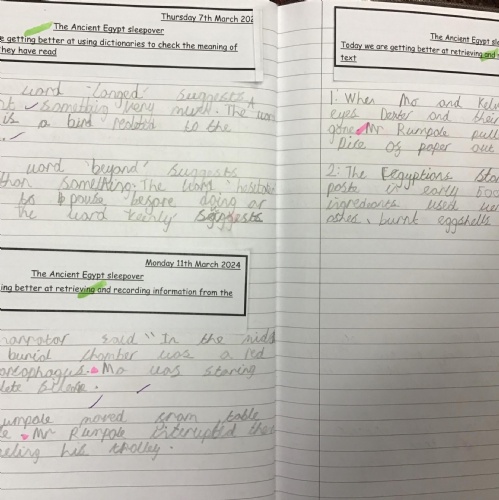 Thursday 7th March 202
The Ancient Egypt sleepover
e getting better at using dictionaries to check the meaning of
they have read
word 'longed' suggests
something very much. The
is a bird related to the
word 'beyond' suggests
than something. The word 'hesitate
to pause before doing or
The word keenly suggests
Monday 11th March 2024
The Ancient Egypt sleepover
ing better at retrieving and recording information from the
narrator said "In the midd
burial chamber was a red
sarcophagus. Mo was staring
plete silence.
umpole moved from table
Mr Rumpole interrupted the
eeling his trolley.
The Ancient Eg
Today we are getting better at retrieving and
text
1. When Mo and Kel
eyes Dexter and their
gone. Mr Rumpole pull
Pice of paper out
2: The Eegyptians star
paste in early 500
ingredients used we
ashes, burnt eggshells